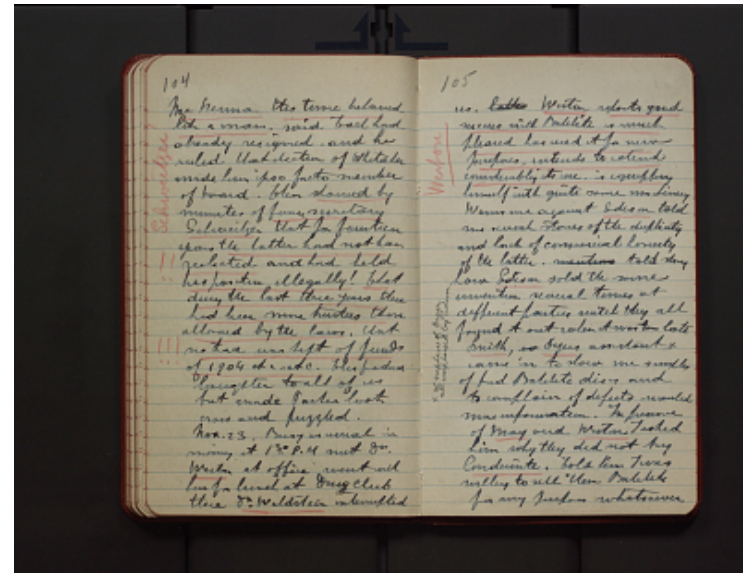 104
Mr. Kenna this time behaved
like a man. said that had
already resigned and he
ruled that election of Whitaker
made him ipso facto member
of board. then showed by
minutes of former secretary
Schweitzer that for fourteen
years the latter had not been
reelected and had held
his position illegally! that
during the last three years there
had been more trustees than
allowed by the laws. that
no had was left of funds
of 1904 etc etc. This peded
laughter to all of us
but made Parker look
cross and puzzled.
Nov. 23. Busy as usual in
morning at 1 30 P.M met Dr.
Weston at office went with
him for lunch at Drug Club
there Dr. Waldstein interrupted
Schweitzer
105
us. Weston reports good
success with Bakelite is much
pleased has used it for new
purposes, intends to extend
considerably its use. is equipping
himself with quite some machinery
Warns me against Edison told
me several stories of the duplicity
and lack of commercial honesty
of the latter. told story
how Edison sold the same
invention several times at
different parties until they all
found it out
Smith, Dyers assistant
came in to show me samples
of bad Bakelite discs and
to complain of defects wanted
more information. In presence
of May and Weston I asked
him why they did not buy
Condensite. Told him I was
willing to sell them Bakelite
for any purpose whatsoever
Weston